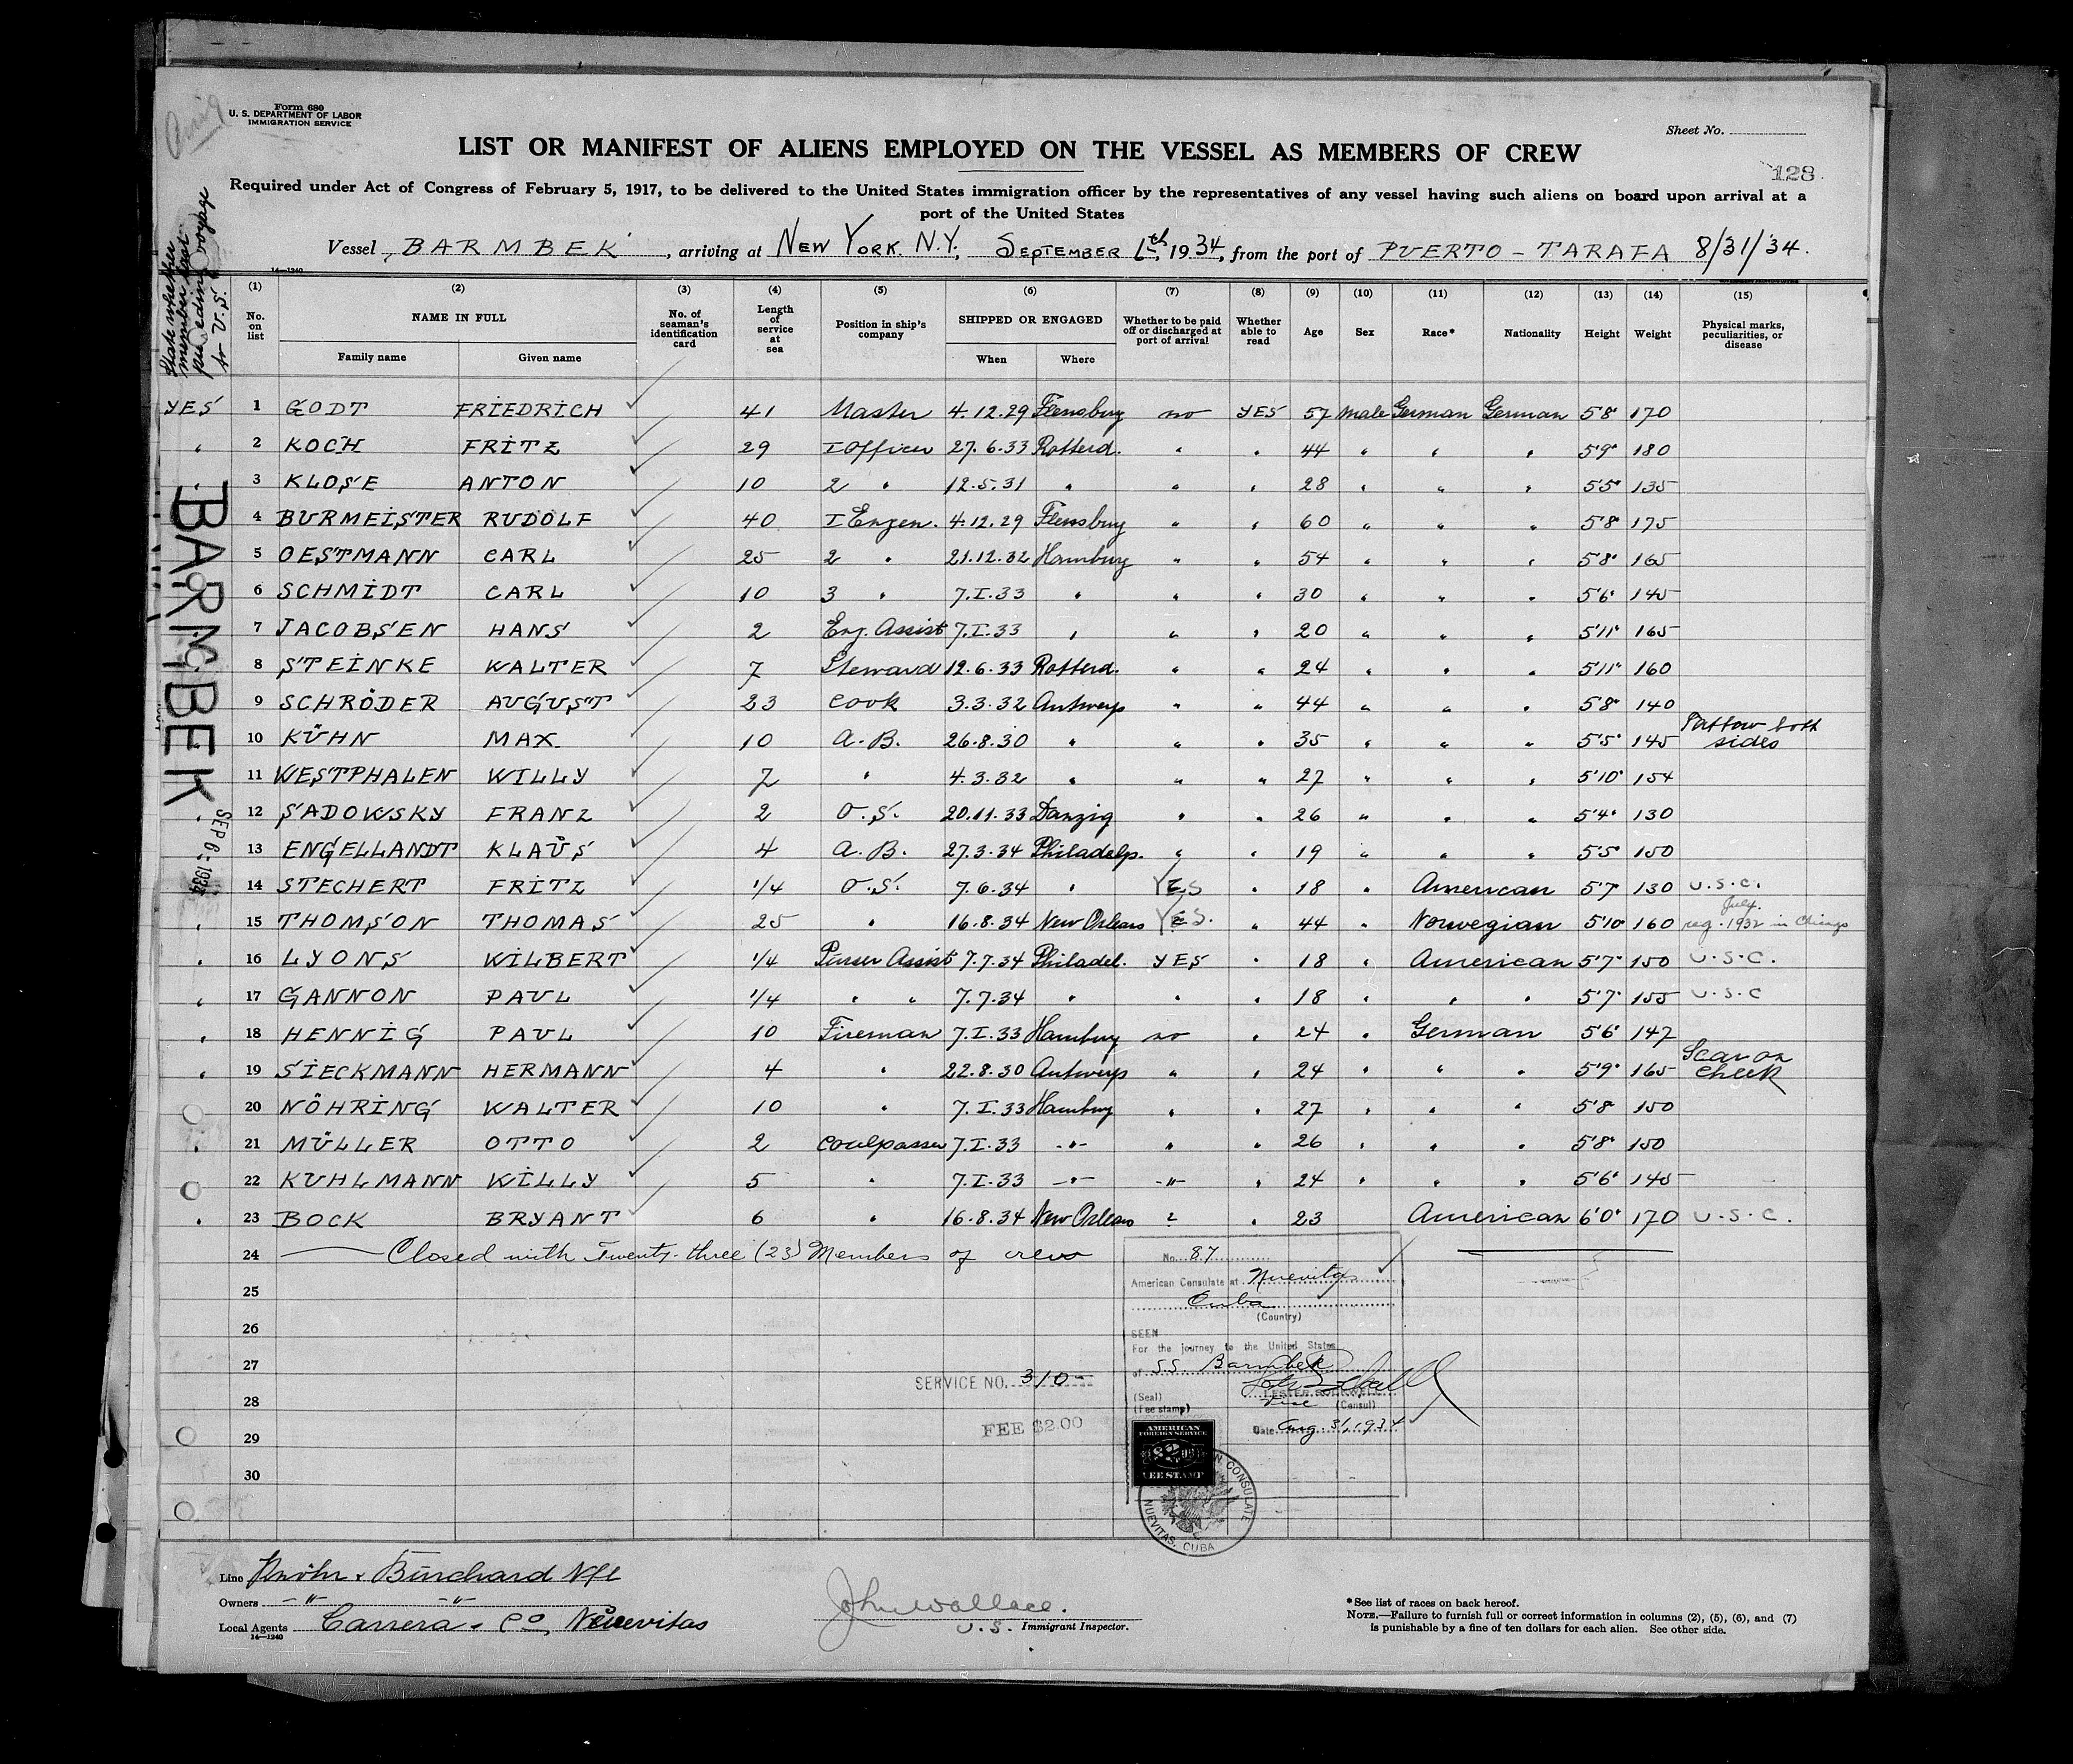 Form 680
U. S. DEPARTMENT OF LABOR
IMMIGRATION SERVICE
Sheet No.
LIST OR MANIFEST OF ALIENS EMPLOYED ON THE VESSEL AS MEMBERS OF CREW
128
Required under Act of Congress of February 5, 1917, to be delivered to the United States immigration officer by the representatives of any vessel having such aliens on board upon arrival at a
port of the United States
Vessel BARMBEK, arriving at NEW YORK. N.Y., SEPTEMBER 6th, 1934, from the port of PUERTO - TARAFA 8/31/34.
14—1240
State whether member last preceding voyage to U.S.
(1) (2) (3) (4) (5) (6) (7) (8) (9) (10) (11) (12) (13) (14) (15)
No. on list NAME IN FULL Family name Given name No. of seaman's identification card Length of service at sea Position in ship's company SHIPPED OR ENGAGED When Where Whether to be paid off or discharged at port of arrival Whether able to read Age Sex Race* Nationality Height Weight Physical marks, peculiarities, or disease
YES 1 GODT FRIEDRICH 41 Master 4.12.29 Flensburg no YES 57 male German German 5'8" 170
" 2 KOCH FRITZ 29 I Officer 27.6.33 Rotterd. " " 44 " " " 5'9" 180
" 3 KLOSE ANTON 10 2 " 12.5.31 " " " 28 " " " 5'5" 135
4 BURMEISTER RUDOLF 40 I Engen. 4.12.29 Flensburg " " 60 " " " 5'8" 175
5 OESTMANN CARL 25 2 " 21.12.32 Hamburg " " 54 " " " 5'8" 165
6 SCHMIDT CARL 10 3 " 7.I.33 " " " 30 " " " 5'6" 145
7 JACOBSEN HANS 2 Eng. Assist 7.I.33 " " " 20 " " " 5'11" 165
8 STEINKE WALTER 7 Steward 12.6.33 Rotterd. " " 24 " " " 5'11" 160
9 SCHRÖDER AUGUST 23 Cook 3.3.32 Antwerp " " 44 " " " 5'8" 140
10 KÜHN MAX 10 A.B. 26.8.30 " " " 35 " " " 5'5" 145 Tattow both sides
11 WESTPHALEN WILLY 7 " 4.3.32 " " " 27 " " " 5'10" 154
12 SADOWSKY FRANZ 2 O.S. 20.11.33 Danzig " " 26 " " " 5'4" 130
13 ENGELLANDT KLAUS 4 A.B. 27.3.34 Philadelp. " " 19 " " " 5'5" 150
14 STECHERT FRITZ 1/4 O.S. 7.6.34 " YES " 18 " American 5'7" 130 U.S.C.
" 15 THOMSON THOMAS 25 " 16.8.34 New Orleans YES. " 44 " Norwegian 5'10" 160 reg. July. 1932 in Chicago
" 16 LYONS WILBERT 1/4 Purser Assist 7.7.34 Philadel. YES " 18 " American 5'7" 150 U.S.C.
" 17 GANNON PAUL 1/4 " " 7.7.34 " " " 18 " " " 5'7" 155 U.S.C
" 18 HENNIG PAUL 10 Fireman 7.I.33 Hamburg no " 24 " German 5'6" 147
" 19 SIECKMANN HERMANN 4 " 22.8.30 Antwerp " " 24 " " " 5'9" 165 Scar on cheek
20 NÖHRING WALTER 10 " 7.I.33 Hamburg " " 27 " " " 5'8" 150
" 21 MÜLLER OTTO 2 Coalpasser 7.I.33 -"- " " 26 " " " 5'8" 150
22 KUHLMANN WILLY 5 " 7.I.33 -"- -"- " 24 " " " 5'6" 145
" 23 BOCK BRYANT 6 " 16.8.34 New Orleans ? " 23 American 6'0" 170 U.S.C.
24 Closed with Twenty-three (23) Members of crew
25
26
27
28
29
30
BARMBEK
SEP 6 - 1934
No. 87
American Consulate at Nuevitas
Cuba
(Country)
SEEN
For the journey to the United States
of S.S. Barmbek
(Seal)
(Fee stamp)
Vice (Consul)
Date Aug. 31, 1934
SERVICE NO. 310-
FEE $2.00
AMERICAN
FOREIGN SERVICE
FEE STAMP
CONSULATE
NUEVITAS, CUBA
Line Knöhr & Burchard Nfl
Owners -"- -"-
Local Agents Carrera & Co, Nuevitas
14—1240
John Wallace.
U.S. Immigrant Inspector.
*See list of races on back hereof.
NOTE.—Failure to furnish full or correct information in columns (2), (5), (6), and (7)
is punishable by a fine of ten dollars for each alien. See other side.